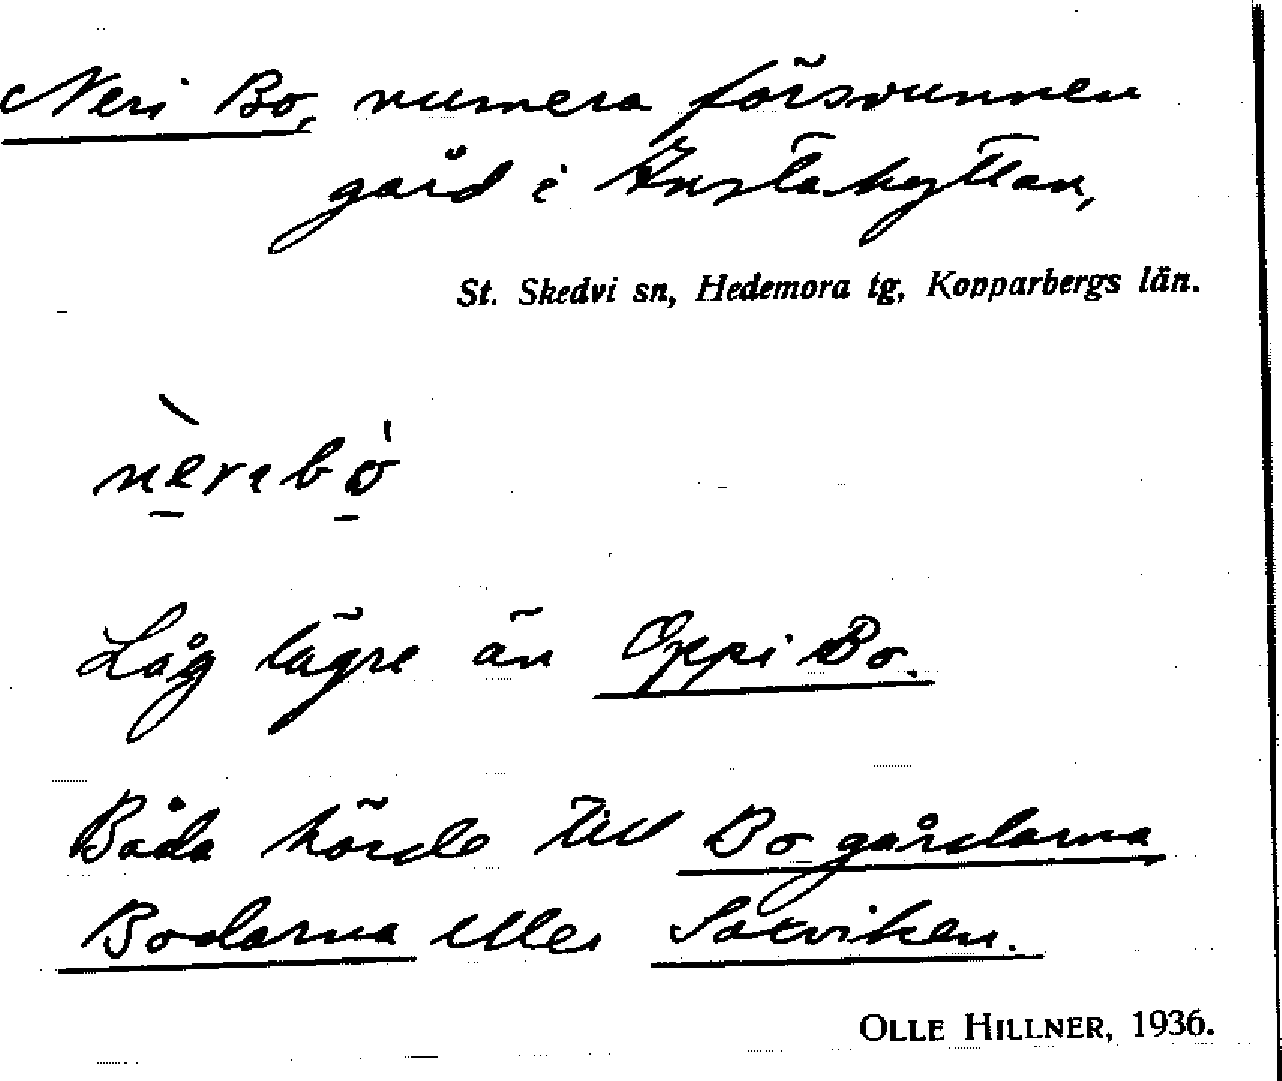 Neri Bo, numera försvunnen
gård i Knstahyttan,
St. Skedvi sn, Hedemora tg, Kopparbergs län.
Låg lägre än Oppi Bo.
Båda hörde till Bogårdarna,
Bodarna eller Saxviken.
OLLE HILLNER, 1936.